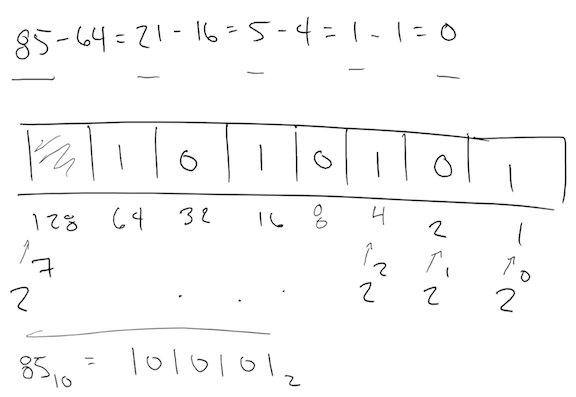 85 - 64 = 21 - 16 = 5 - 4 = 1 - 1 = 0
1 0 1 0 1 0 1
128 64 32 16 8 4 2 1
2^7 . . . 2^2 2^1 2^0
85₁₀ = 1010101₂